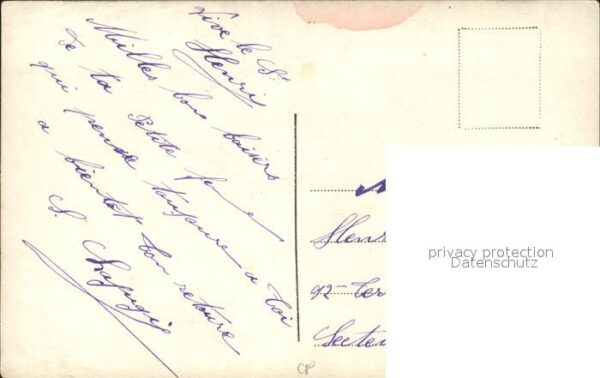 Vive le St
Henri
Milles bons baisers
De ta Petite fe
qui pense toujours a toi
a bientot ton retour
S.
Henr
92 Ter
Secte
privacy protection
Datenschutz
CP